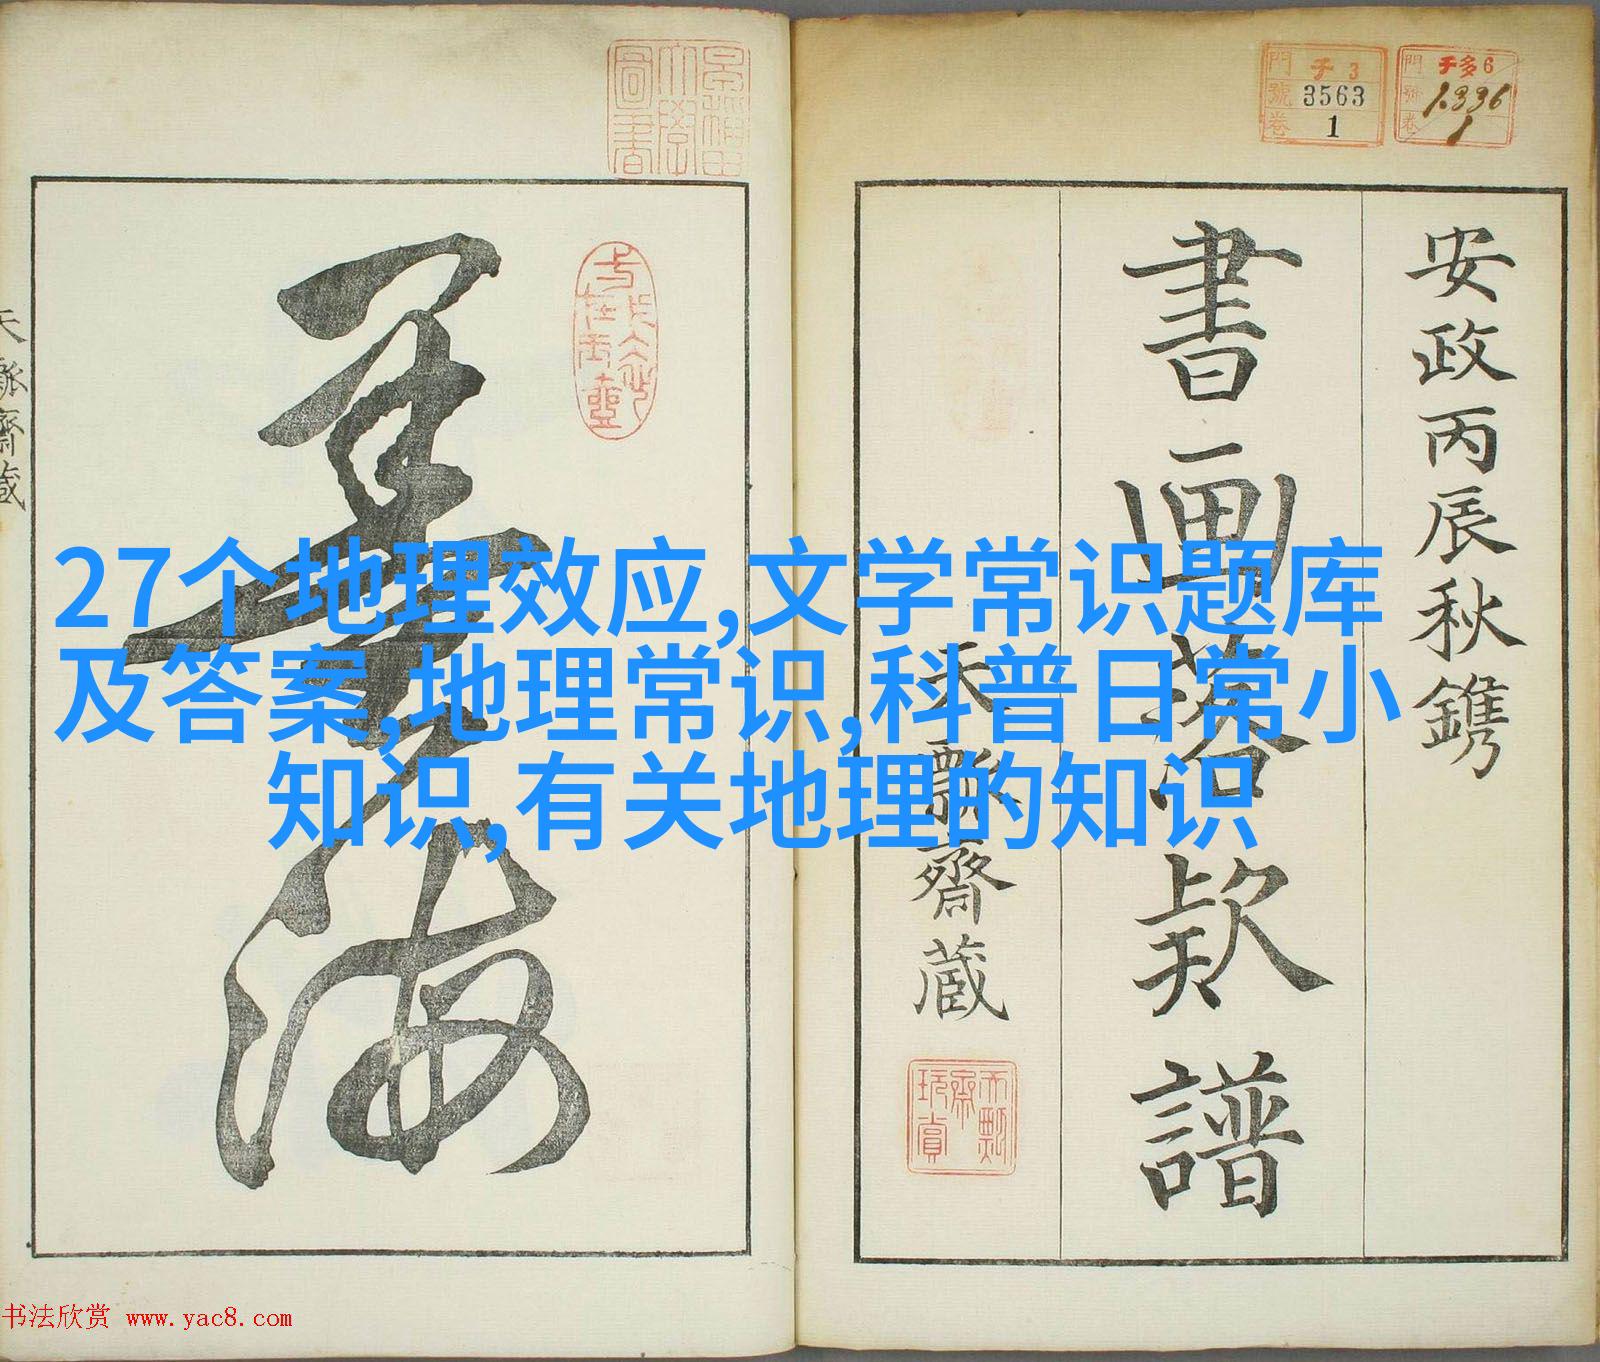 27个地理效应,文学常识题库
及答案,地理常识,科普日常小
知识,有关地理的知识
安政丙辰秋鐫
書画落款譜
天瓢齋蔵
門 チ 3
號 3563
卷 1
門 チ多6
號 1336
卷 1
天瓢齋蔵
書法欣赏 www.yac8.com